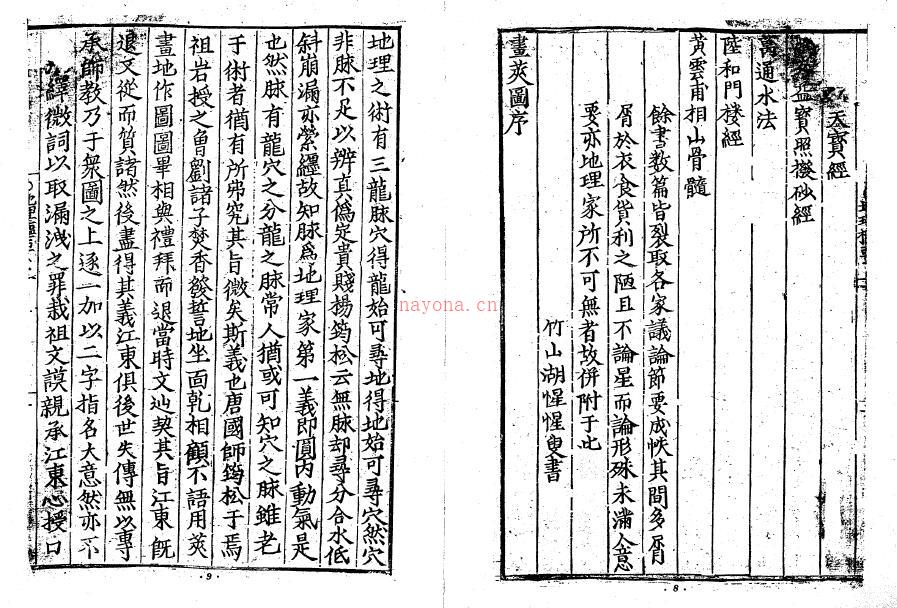 天寶經
寶照撥砂經
萬通水法
陸和門㨗經
黃雲甫相山骨髓
餘書数篇皆裂取各家議論節要成帙其間多屑
屑於衣食貨利之陋且不論星而論形殊未滿人意
要亦地理家所不可無者故併附于此
竹山湖惺惺叟書
畫莢圖序
·8·
地理之術有三龍脉穴得龍始可尋地得地始可尋穴然穴
非脉不足以辨真僞定貴賤楊筠松云無脉却尋分合水低
斜崩漏亦縈纒故知脉為地理家第一義即圓内動氣是
也然脉有龍穴之分龍之脉常人猶或可知穴之脉雖老
于術者猶有所弗究其旨微矣斯義也唐國師筠松于焉
祖岩授之曾劉諸子焚香發誓地坐面乾相顧不語用莢
畫地作圖圖畢相與禮拜而退當時文辿契其旨江東既
退又從而質諸然後盡得其義江東俱後世失傳無以專
承師教乃于衆圖之上逐一加以二字指名大意然亦不
繹微詞以取漏洩之罪哉祖文謨親承江東心授口
·9·
nayona.cn